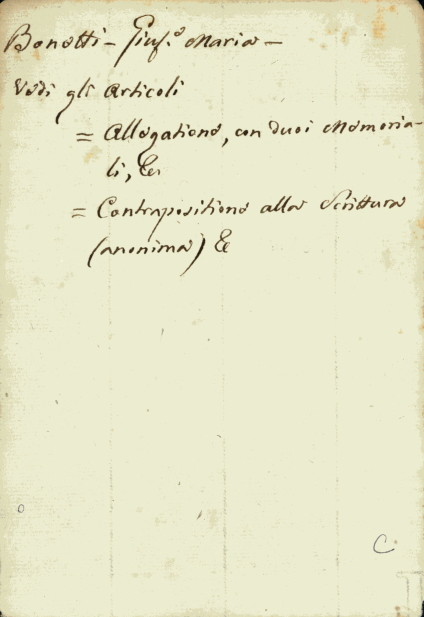 Bonetti - Giuſ.e Maria -
Vedi gli Articoli
= Allegatione, con duoi Memoria-
li, &c.
= Contrapositione alla Scrittura
(anonima) &c
C.